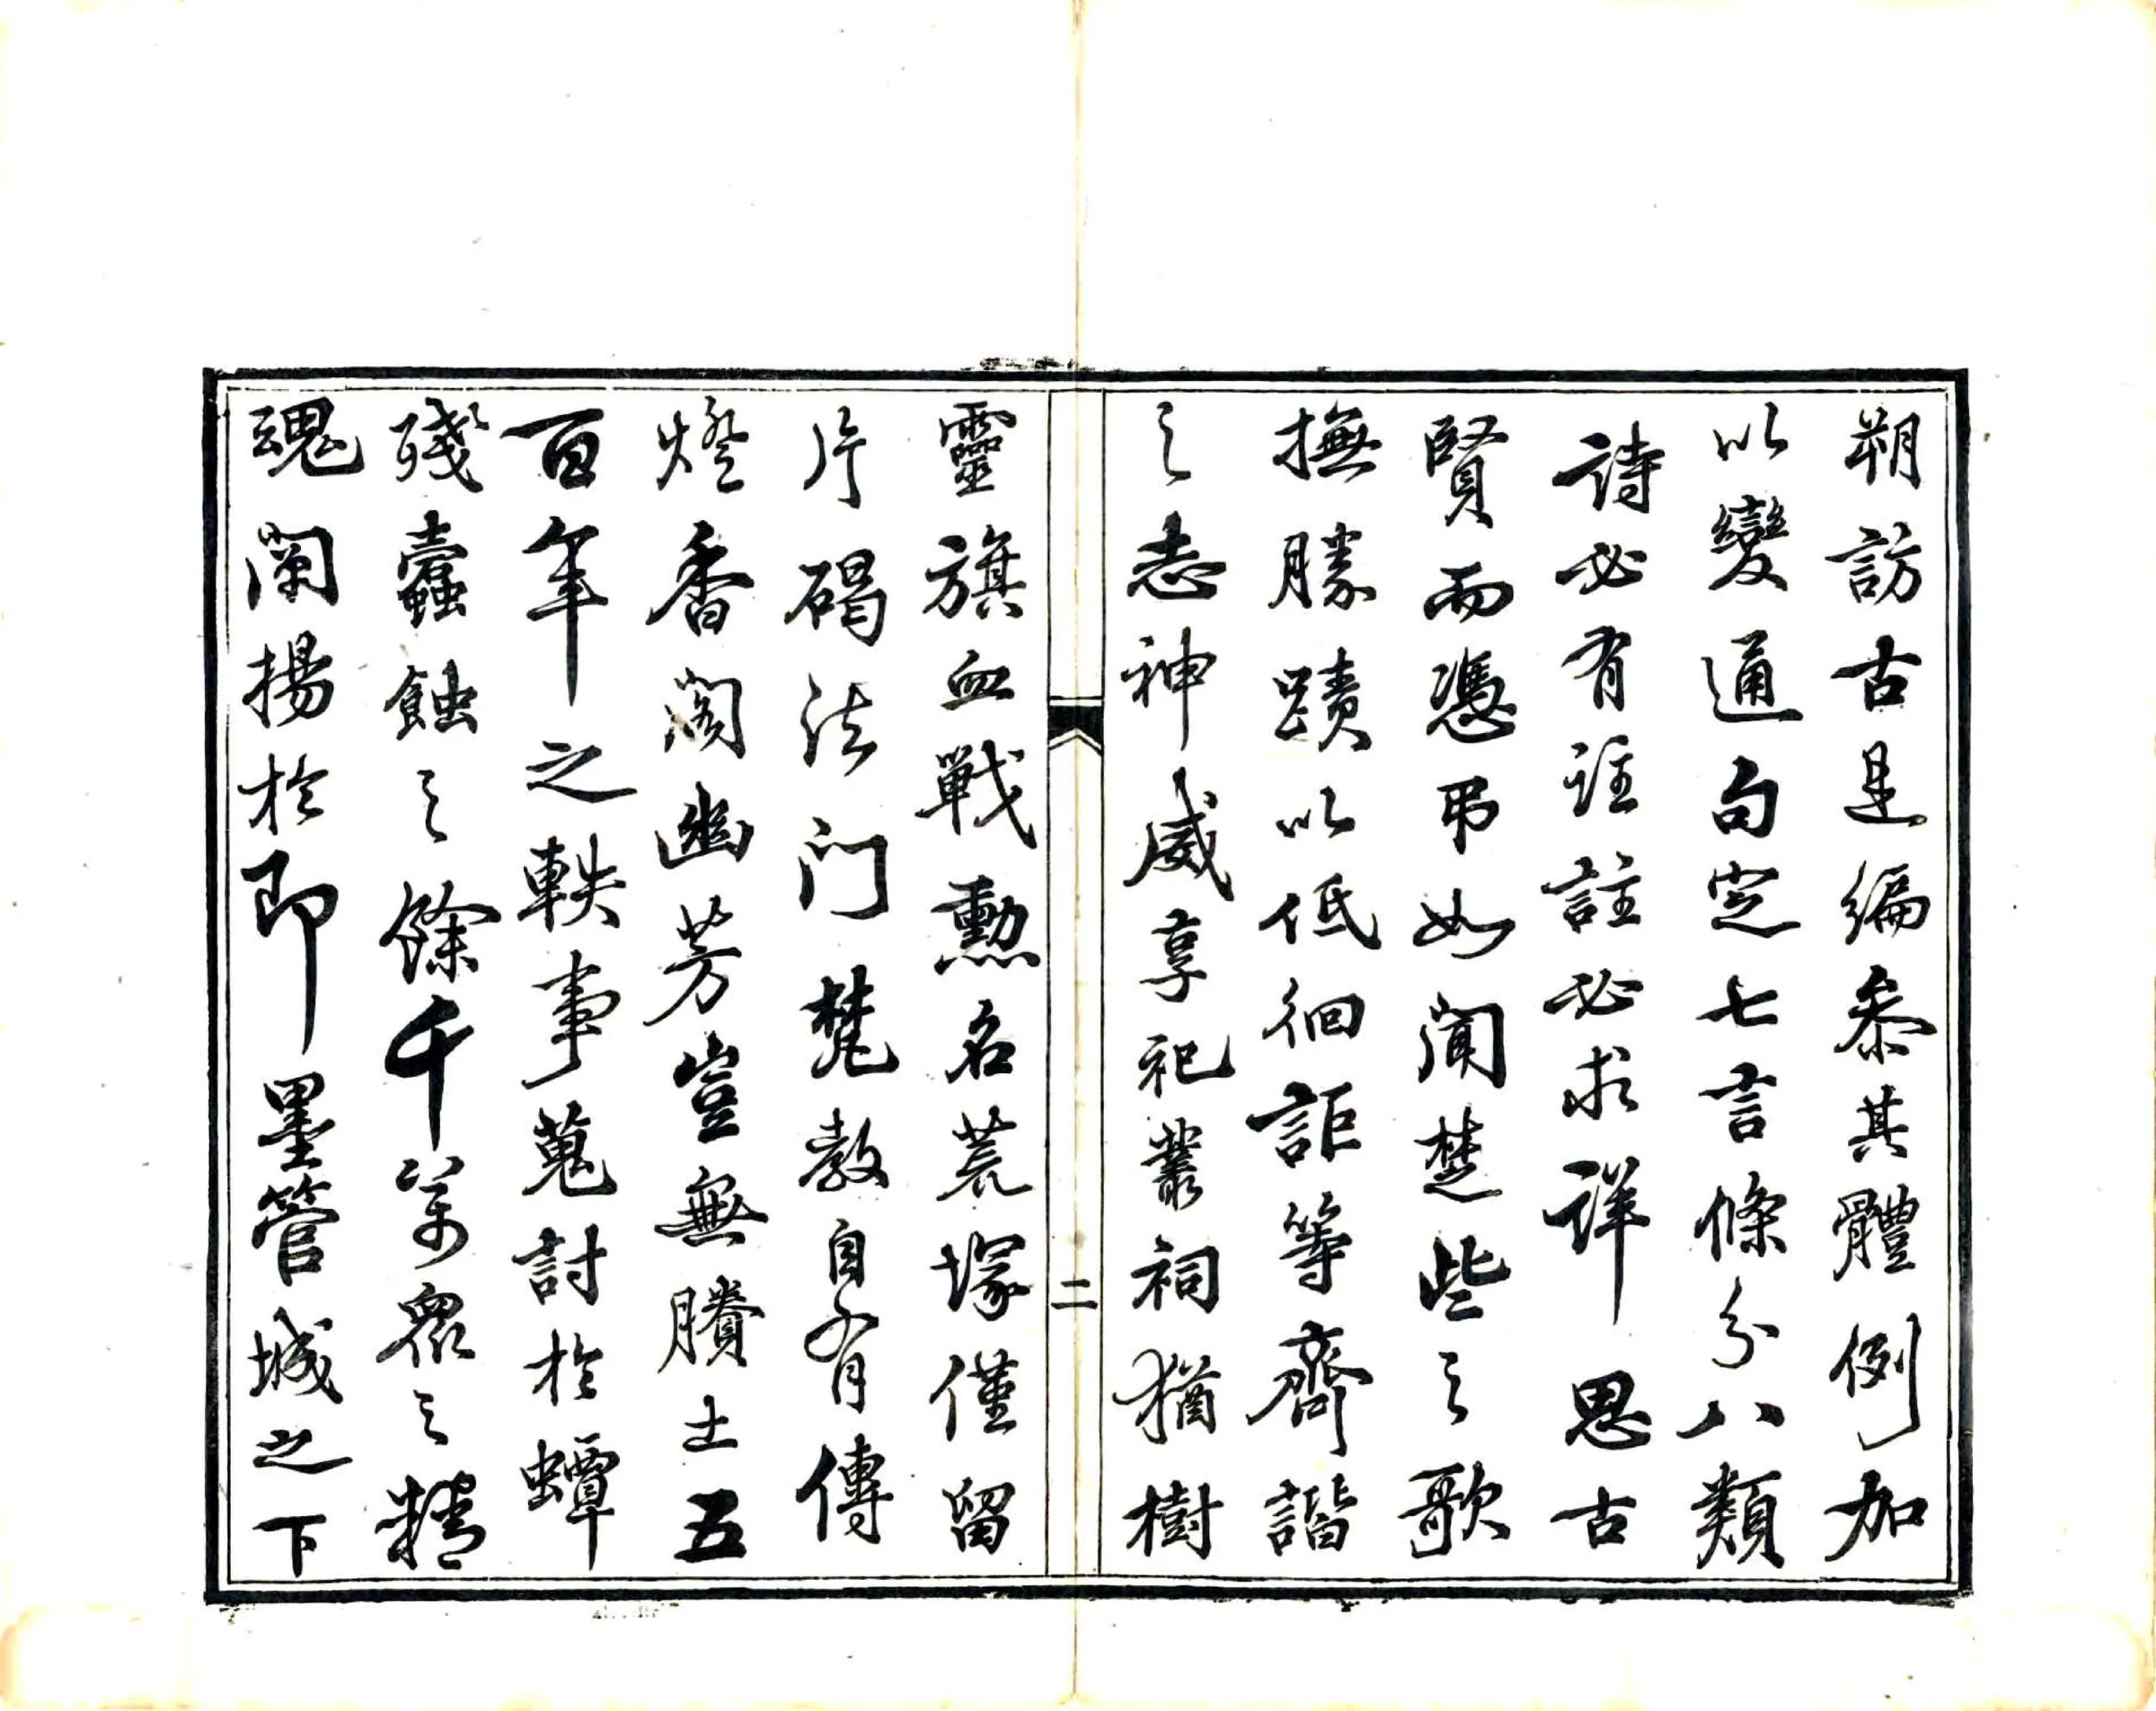 朔訪古是編叅其體例加
以變通句定七言條分八類
詩必有註註必求詳思古
賢而憑弔如聞楚些之歌
撫勝蹟以低徊詎等齊諧
之志神威享祀叢祠猶樹
二
靈旗血戰勳名荒塚僅留
片碣法門梵教自有傳
燈香閣幽芳豈無賸土五
百年之軼事蒐討於蟫
殘蠹蝕之餘千萬衆之精
魂闡揚於即墨管城之下